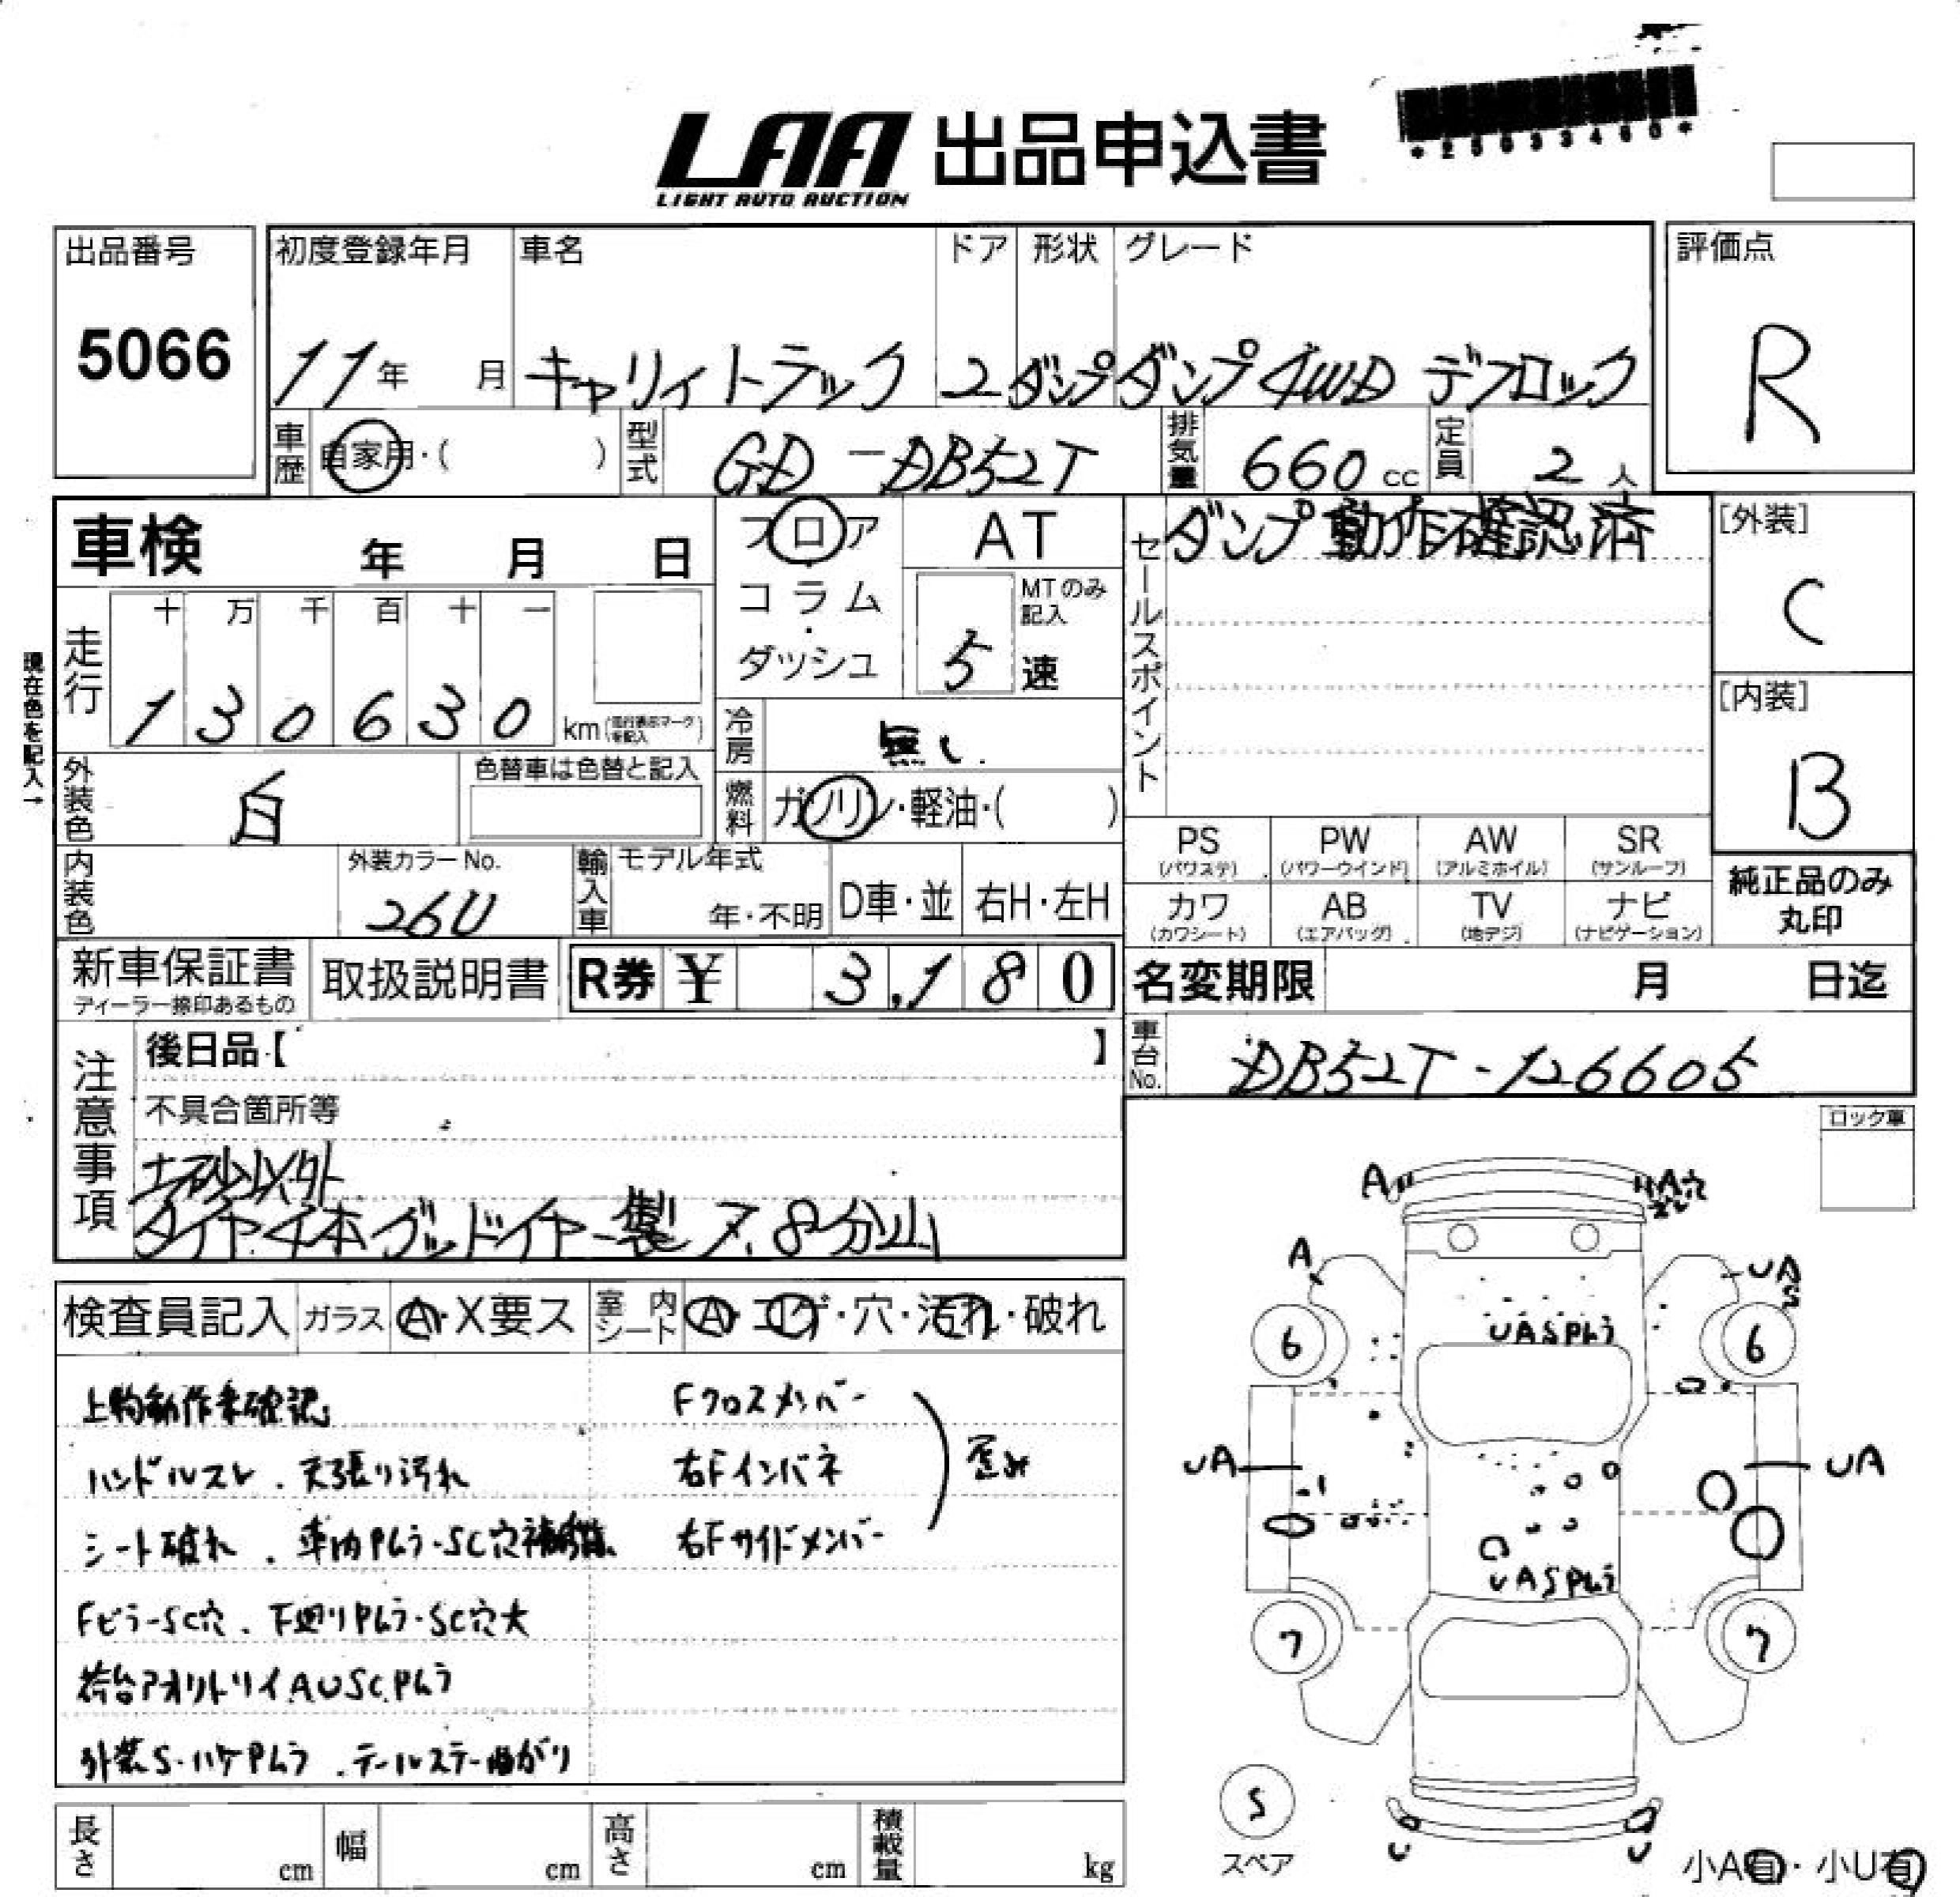 LAA 出品申込書
LIGHT AUTO AUCTION
出品番号
5066
初度登録年月
11年 月
車名
キャリイトラック
ドア
2
形状
ダンプ
グレード
ダンプ4WD デフロック
評価点
R
車歴
自家用・( )
型式
GD-DB52T
排気量
660 cc
定員
2 人
車検 年 月 日
フロア
・
コラム
・
ダッシュ
AT
MTのみ
記入
5 速
セールスポイント
ダンプ動作確認済
[外装]
C
[内装]
B
現在色を記入→
走行
十 万 千 百 十 一
1 3 0 6 3 0 km
冷房
無し
燃料
ガソリン・軽油・( )
外装色
白
色替車は色替と記入
内装色
外装カラーNo.
26U
輸入車
モデル年式
年・不明
D車・並
右H・左H
PS
(パワステ)
PW
(パワーウインド)
AW
(アルミホイル)
SR
(サンルーフ)
カワ
(カワシート)
AB
(エアバッグ)
TV
(地デジ)
ナビ
(ナビゲーション)
純正品のみ
丸印
新車保証書
ディーラー捺印あるもの
取扱説明書
R券 ¥ 3,180
名変期限 月 日迄
車台No.
DB52T-126605
注意事項
後日品【 】
不具合箇所等
土砂以外
タイヤ4本グッドイヤー製 7.8分山
ロック車
検査員記入
ガラス
A・X要ス
室内シート
A・コゲ・穴・汚れ・破れ
上物動作未確認
Fクロスメンバー
ハンドルスレ.天張り汚れ
右Fインパネ
歪み
シート破れ.車内Pムラ・SC穴補修跡
右Fサイドメンバー
FピラーSC穴.下廻りPムラ・SC穴大
荷台アオリトリイAUSC.Pムラ
外装S・ハゲPムラ.テールステー曲がり
A
A穴
A
UA
S
6
UASPムラ
6
UA
UA
UASPムラ
7
7
S
スペア
U
U
小A有・小U有
長さ cm
幅 cm
高さ cm
積載量 kg